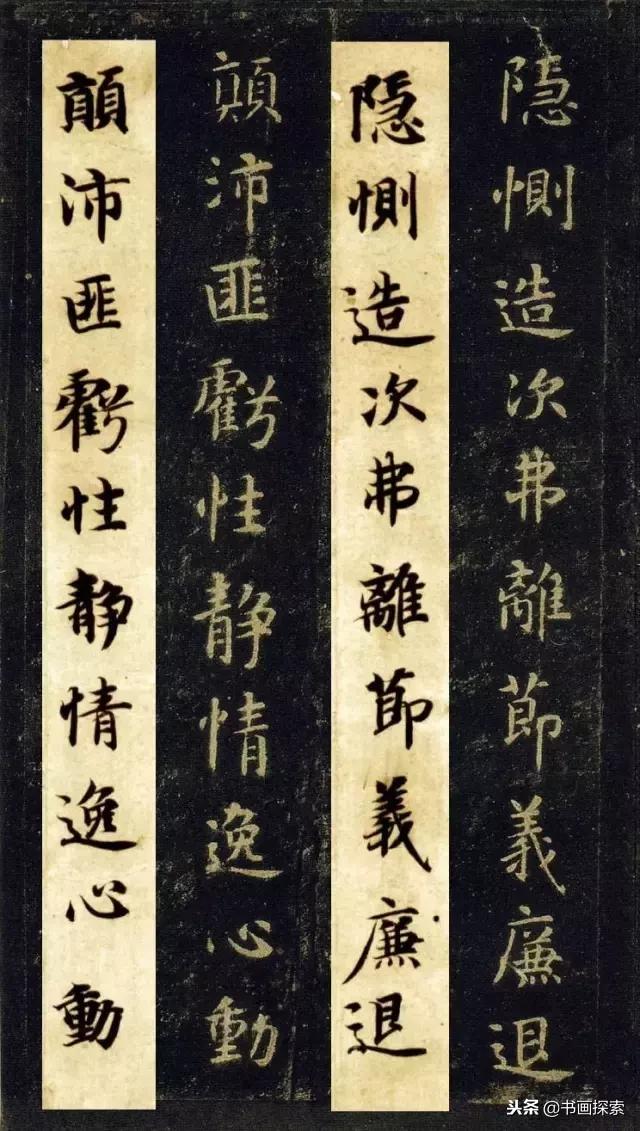 隐惻造次弗離節義廉退
隐惻造次弗離節義廉退
顛沛匪虧性静情逸心動
顛沛匪虧性静情逸心動
头条 @书画探索